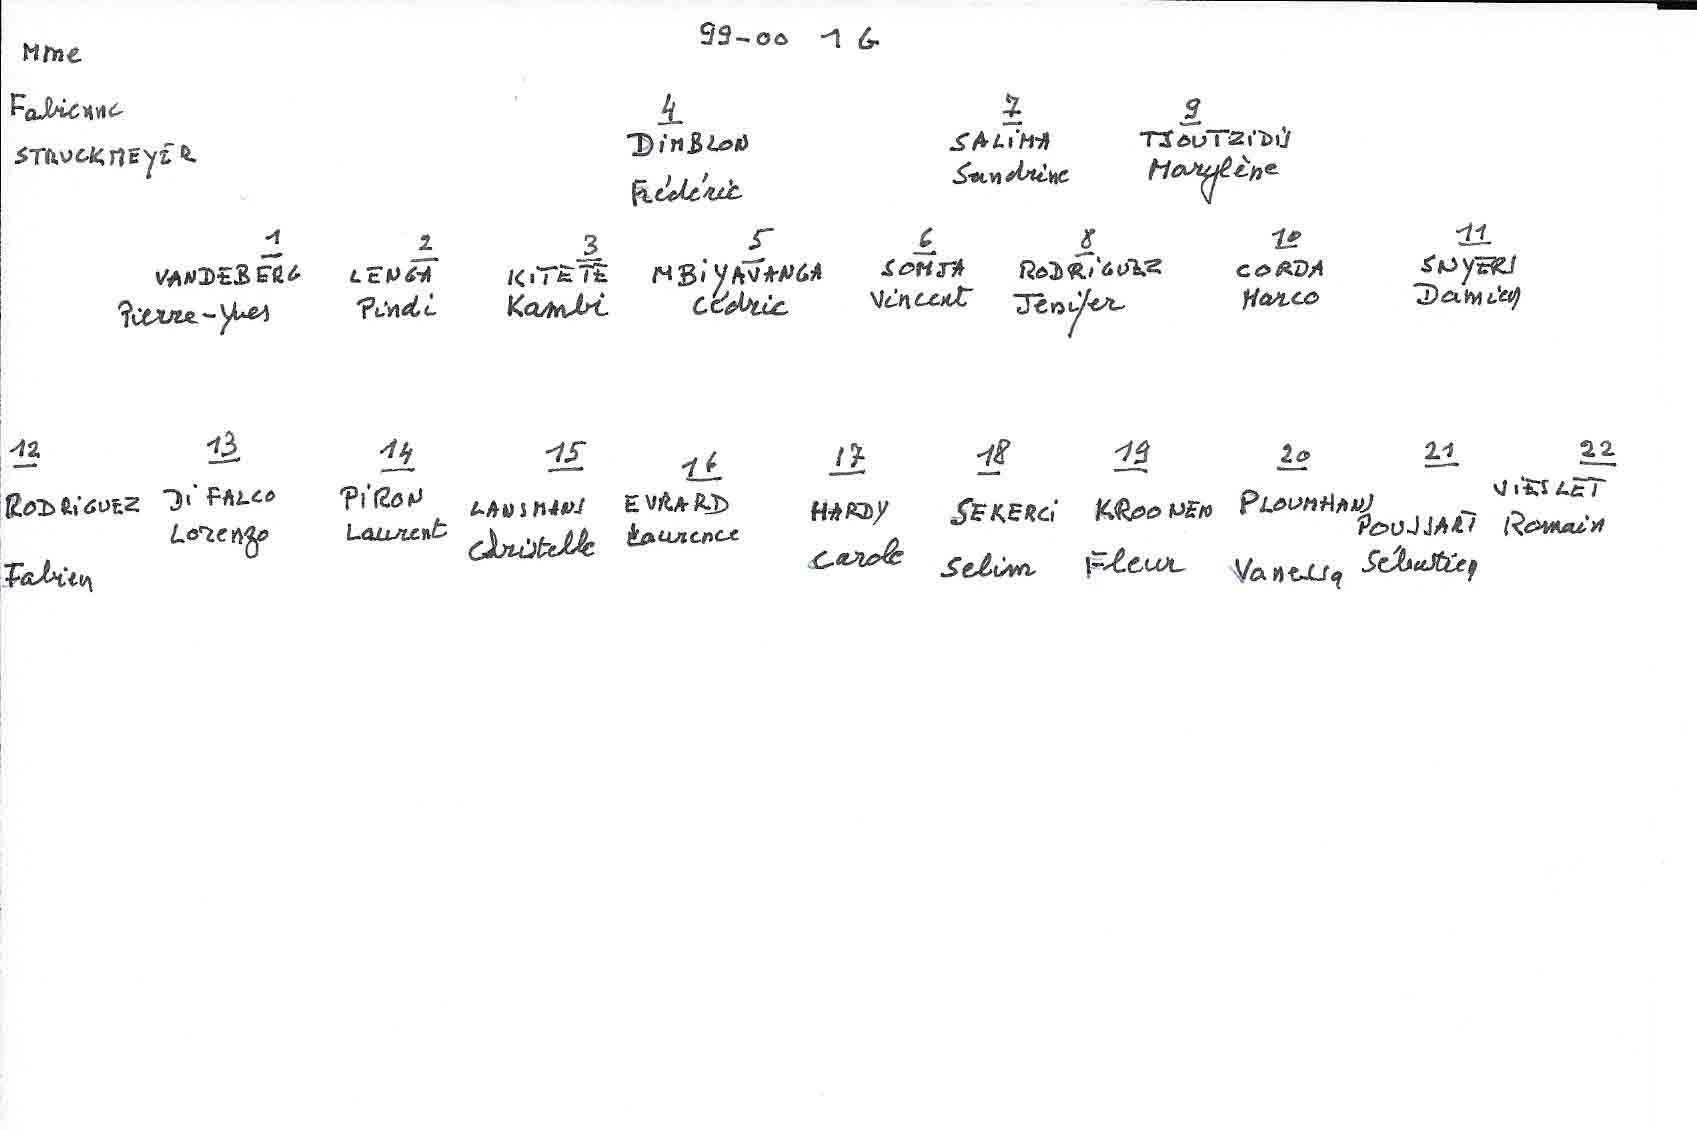 99-00 1G
Mme
Fabienne
STRUCKMEYER
4 7 9
DIMBLON SALIMA TSOUTZIDIS
Frédéric Sandrine Marylène
1 2 3 5 6 8 10 11
VANDEBERG LENGA KITETE MBIYAVANGA SOMJA RODRIGUEZ CORDA SNYERS
Pierre-Yves Pindi Kambi Cédric Vincent Jenifer Marco Damien
12 13 14 15 16 17 18 19 20 21 22
RODRIGUEZ DI FALCO PIRON LANSMANS EVRARD HARDY SEKERCI KROONEN PLOUMHANS POUSSART VIESLET
Fabien Lorenzo Laurent Christelle Laurence Carole Selim Fleur Vanessa Sébastien Romain